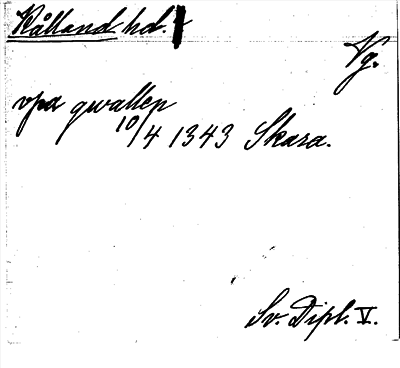 Kålland hd.
Vg.
vpa gwallep
10/4 1343 Skara.
Sv. Dipl. V.